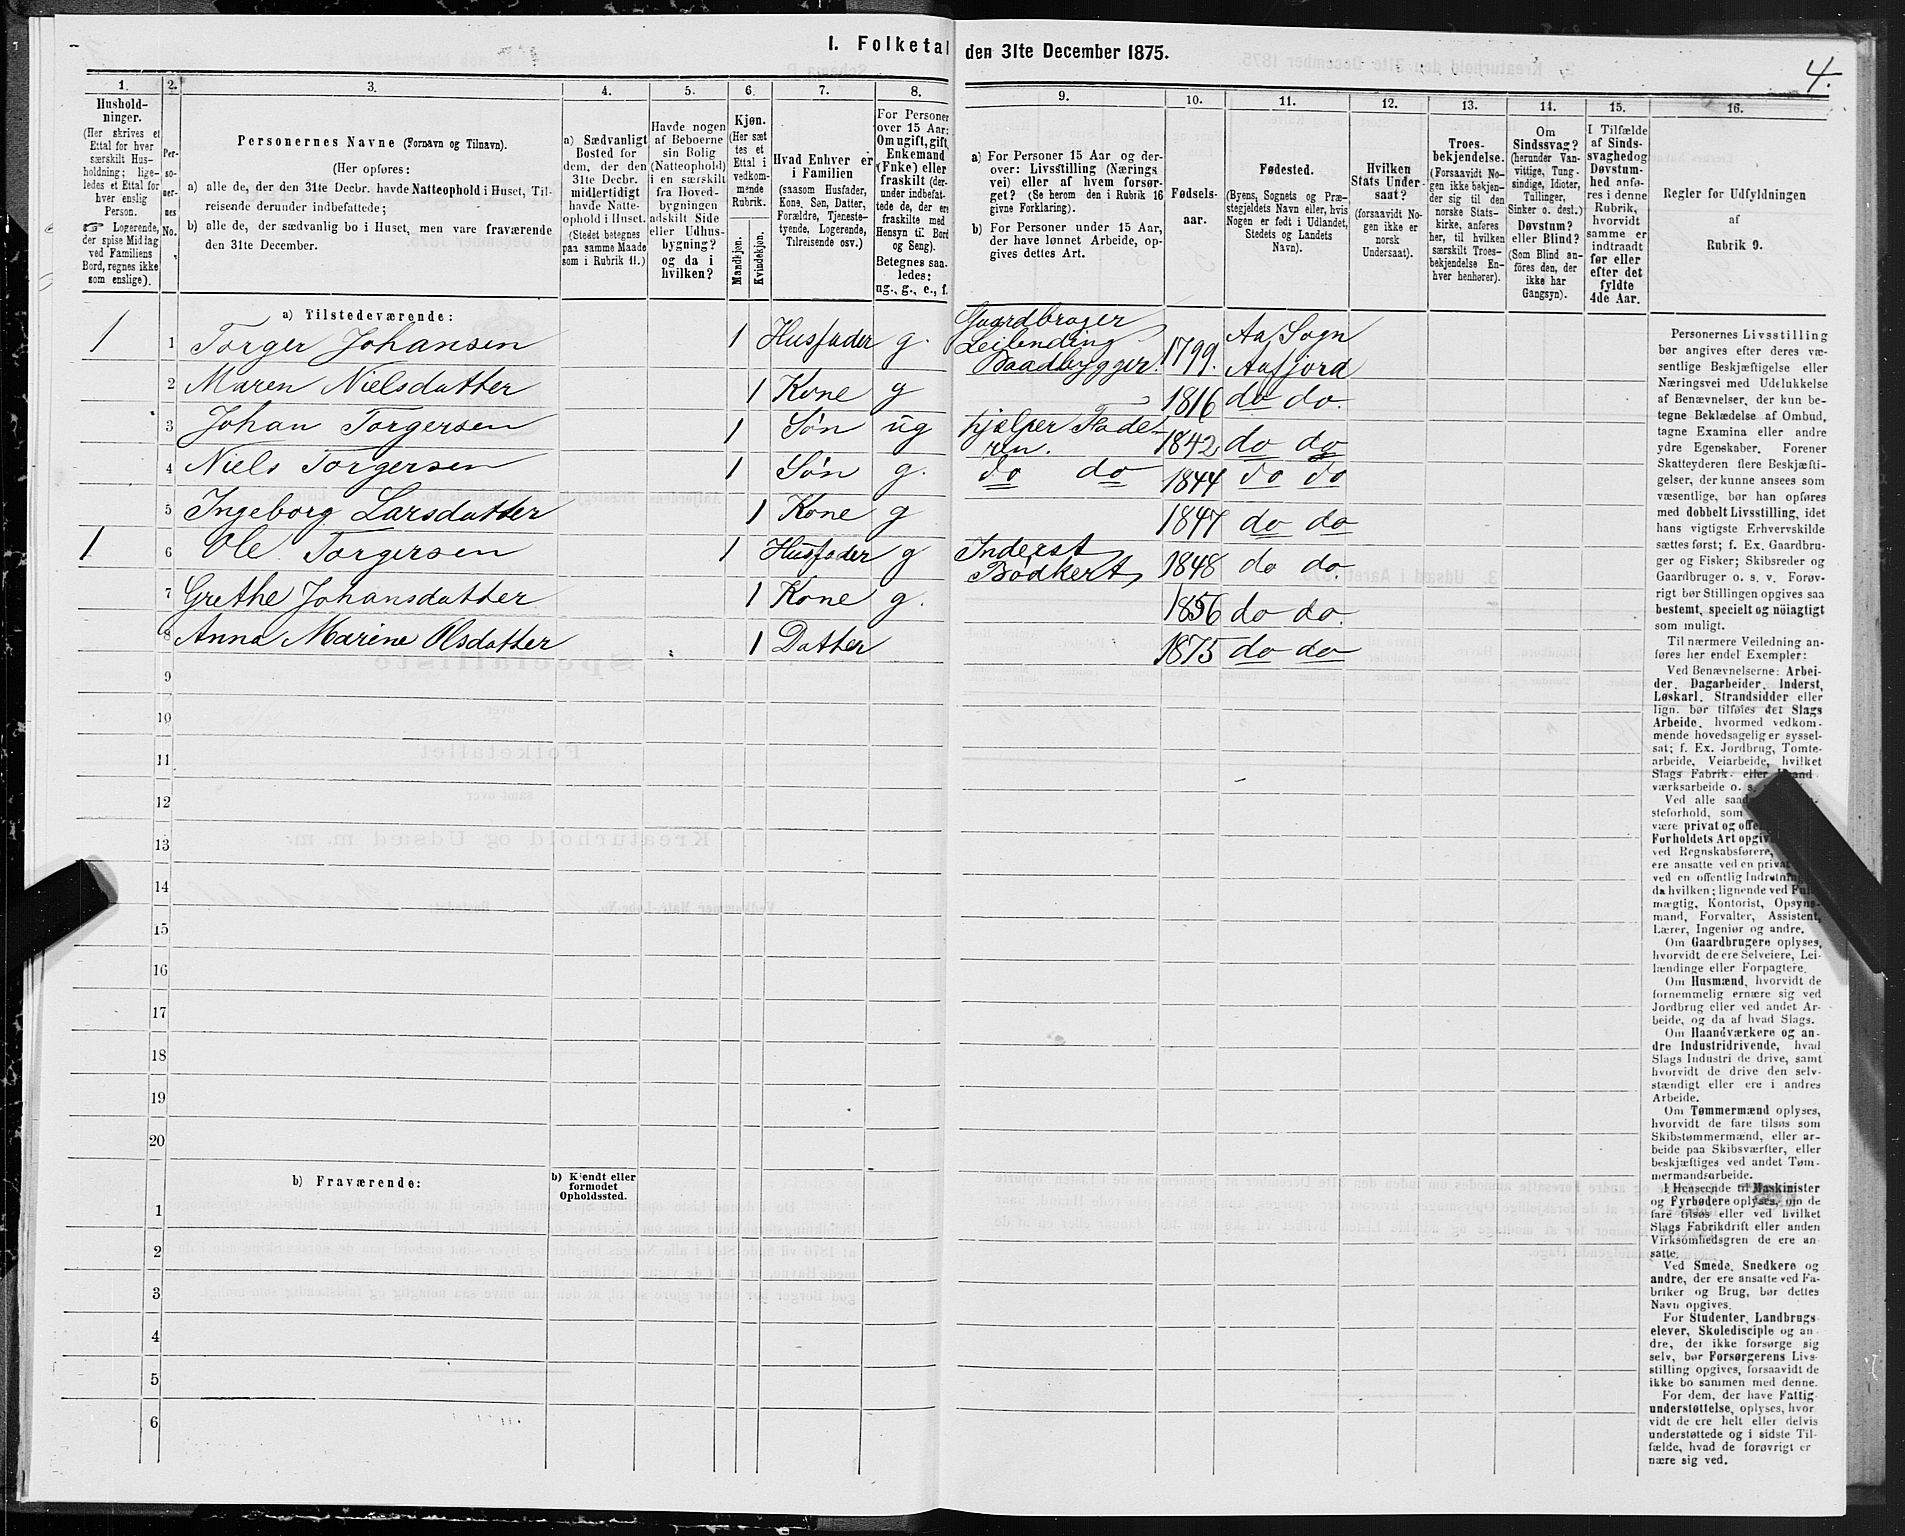 I. Folketal den 31te December 1875.
4.
1.
Hushold-
ninger.
(Her skrives et
Ettal for hver
særskilt Hus-
holdning; lige-
ledes et Ettal for
hver enslig
Person.
☞ Logerende,
der spise Middag
ved Familiens
Bord, regnes ikke
som enslige).
2.
Per-
so-
ner-
nes
No.
3.
Personernes Navne (Fornavn og Tilnavn).
(Her opføres:
a) alle de, der den 31te Decbr. havde Natteophold i Huset, Til-
reisende derunder indbefattede;
b) alle de, der sædvanlig bo i Huset, men vare fraværende
den 31te December.
4.
a) Sædvanligt
Bosted for
dem, der den
31te Decbr.
midlertidigt
havde Natte-
ophold i Huset.
(Stedet betegnes
paa samme Maade
som i Rubrik 11.)
5.
Havde nogen
af Beboerne
sin Bolig
(Natteophold)
i en særskilt
fra Hoved-
bygningen
adskilt Side
eller Udhus-
bygning?
og da i
hvilken?
6.
Kjøn.
(Her sæt
tes et
Ettal i
vedkom-
mende
Rubrik.
Mandkjøn.
Kvindekjøn.
7.
Hvad Enhver er
i Familien
(saasom Husfader,
Kone, Søn, Datter,
Forældre, Tjeneste-
tyende, Logerende,
Tilreisende osv.)
8.
For Personer
over 15 Aar:
Om ugift, gift,
Enkemand
(Enke) eller
fraskilt (der-
under indbefat-
tede de, der ere
fraskilte med
Hensyn til Bord
og Seng).
Betegnes saa-
ledes:
ug., g., e., f.
9.
a) For Personer 15 Aar og der-
over: Livsstilling (Nærings
vei) eller af hvem forsør-
get? (Se herom den i Rubrik 16
givne Forklaring).
b) For Personer under 15 Aar,
der have lønnet Arbeide, op-
gives dettes Art.
10.
Fødsels-
aar.
11.
Fødested.
(Byens, Sognets og Præ-
stegjeldets Navn eller, hvis
Nogen er født i Udlandet,
Stedets og Landets
Navn).
12.
Hvilken
Stats Under-
saat?
(forsaavidt No-
gen ikke er
norsk
Undersaat).
13.
Troes-
bekjendelse.
(Forsaavidt No-
gen ikke bekjen-
der sig til den
norske Stats-
kirke, anføres
her, til hvilken
særskilt Troes-
bekjendelse En-
hver henhører).
14.
Om
Sindssvag?
(herunder Van-
vittige, Tung-
sindige, Idioter,
Tullinger,
Sinker o. desl.)
Døvstum?
eller Blind?
(Som Blind an-
føres den, der
ikke har
Gangsyn).
15.
I Tilfælde
af Sinds-
svaghed og
Døvstum-
hed anfø-
res i denne
Rubrik,
hvorvidt
samme er
indtraadt
før eller
efter det
fyldte
4de Aar.
16.
Regler for Udfyldningen
af
Rubrik 9.
a) Tilstedeværende:
1 1 Torger Johansen 1 Husfader g. Gaardbruger Leilending Baadbygger. 1799. Aa Sogn Aafjord
2 Maren Nielsdatter 1 Kone g 1816 do do.
3 Johan Torgersen 1 Søn ug hjælper Faderen. 1842 do do
4 Niels Torgersen 1 Søn g. do do 1844 do do
5 Ingeborg Larsdatter 1 Kone g 1847 do do
1 6 Ole Torgersen 1 Husfader g Inderst Bødkert 1848 do do.
7 Grethe Johansdatter 1 Kone g. 1856 do do.
8 Anna Marine Olsdatter 1 Datter 1875 do do
9
10
11
12
13
14
15
16
17
18
19
20
b) Fraværende:
b) Kjendt eller
formodet
Opholdssted.
1
2
3
4
5
6
Personernes Livsstilling
bør angives efter deres væ-
sentlige Beskjæftigelse eller
Næringsvei med Udelukkelse
af Benævnelser, der kun be-
tegne Beklædelse af Ombud,
tagne Examina eller andre
ydre Egenskaber. Forener
Skatteyderen flere Beskjæfti-
gelser, der kunne ansees som
væsentlige, bør han opføres
med dobbelt Livsstilling, idet
hans vigtigste Erhvervskilde
sættes først; f. Ex. Gaardbru-
ger og Fisker; Skibsreder og
Gaardbruger o. s. v. Forøv-
rigt bør Stillingen opgives saa
bestemt, specielt og nöiagtigt
som muligt.
Til nærmere Veiledning an-
føres her endel Exempler:
Ved Benævnelserne: Arbei-
der, Dagarbeider, Inderst,
Løskarl, Strandsidder eller
lign. bør tilføies det Slags
Arbeide, hvormed vedkom-
mende hovedsagelig er syssel-
sat; f. Ex. Jordbrug, Tomte-
arbeide, Veiarbeide, hvilket
Slags Fabrik- eller
værksarbeide o. s.
Ved alle
steforhold, som
være privat og
Forholdets Art
ved Regnskabsførere,
ere ansatte ved en privat
ved en offentlig
da hvilken; lignende ved
mægtig, Kontorist, Opsyns-
mand, Forvalter, Assistent,
Lærer, Ingeniør og andre.
Om Gaardbrugere oplyses,
hvorvidt de ere Selveiere, Lei-
lændinge eller Forpagtere.
Om Husmænd, hvorvidt de
fornemmelig ernære sig ved
Jordbrug eller ved andet Ar-
beide, og da af hvad Slags.
Om Haandværkere og an-
dre Industridrivende, hvad
Slags Industri de drive, samt
hvorvidt de drive den selv-
stændigt eller ere i andres
Arbeide.
Om Tømmermænd oplyses,
hvorvidt de fare tilsøs som
Skibstømmermænd, eller ar-
beide paa Skibsværfter, eller
beskjæftiges ved andet Tøm-
mermandsarbeide.
I Henseende til Maskinister
og Fyrbødere oplyses, om de
fare tilsøs eller ved hvilket
Slags Fabrikdrift eller anden
Virksomhedsgren de ere an-
satte.
Ved Smede, Snedkere og
andre, der ere ansatte ved Fa-
briker og Brug, bør dettes
Navn opgives.
For Studenter, Landbrugs-
elever, Skoledisciple og an-
dre, der ikke forsørge sig
selv, bør Forsørgerens Livs-
stilling opgives, forsaavidt de
ikke bo sammen med denne.
For dem, der have Fattig-
understøttelse, oplyses, hvor-
vidt de ere helt eller delvis
understøttede og i sidste Til-
fælde, hvad de forøvrigt er
nære sig ved.